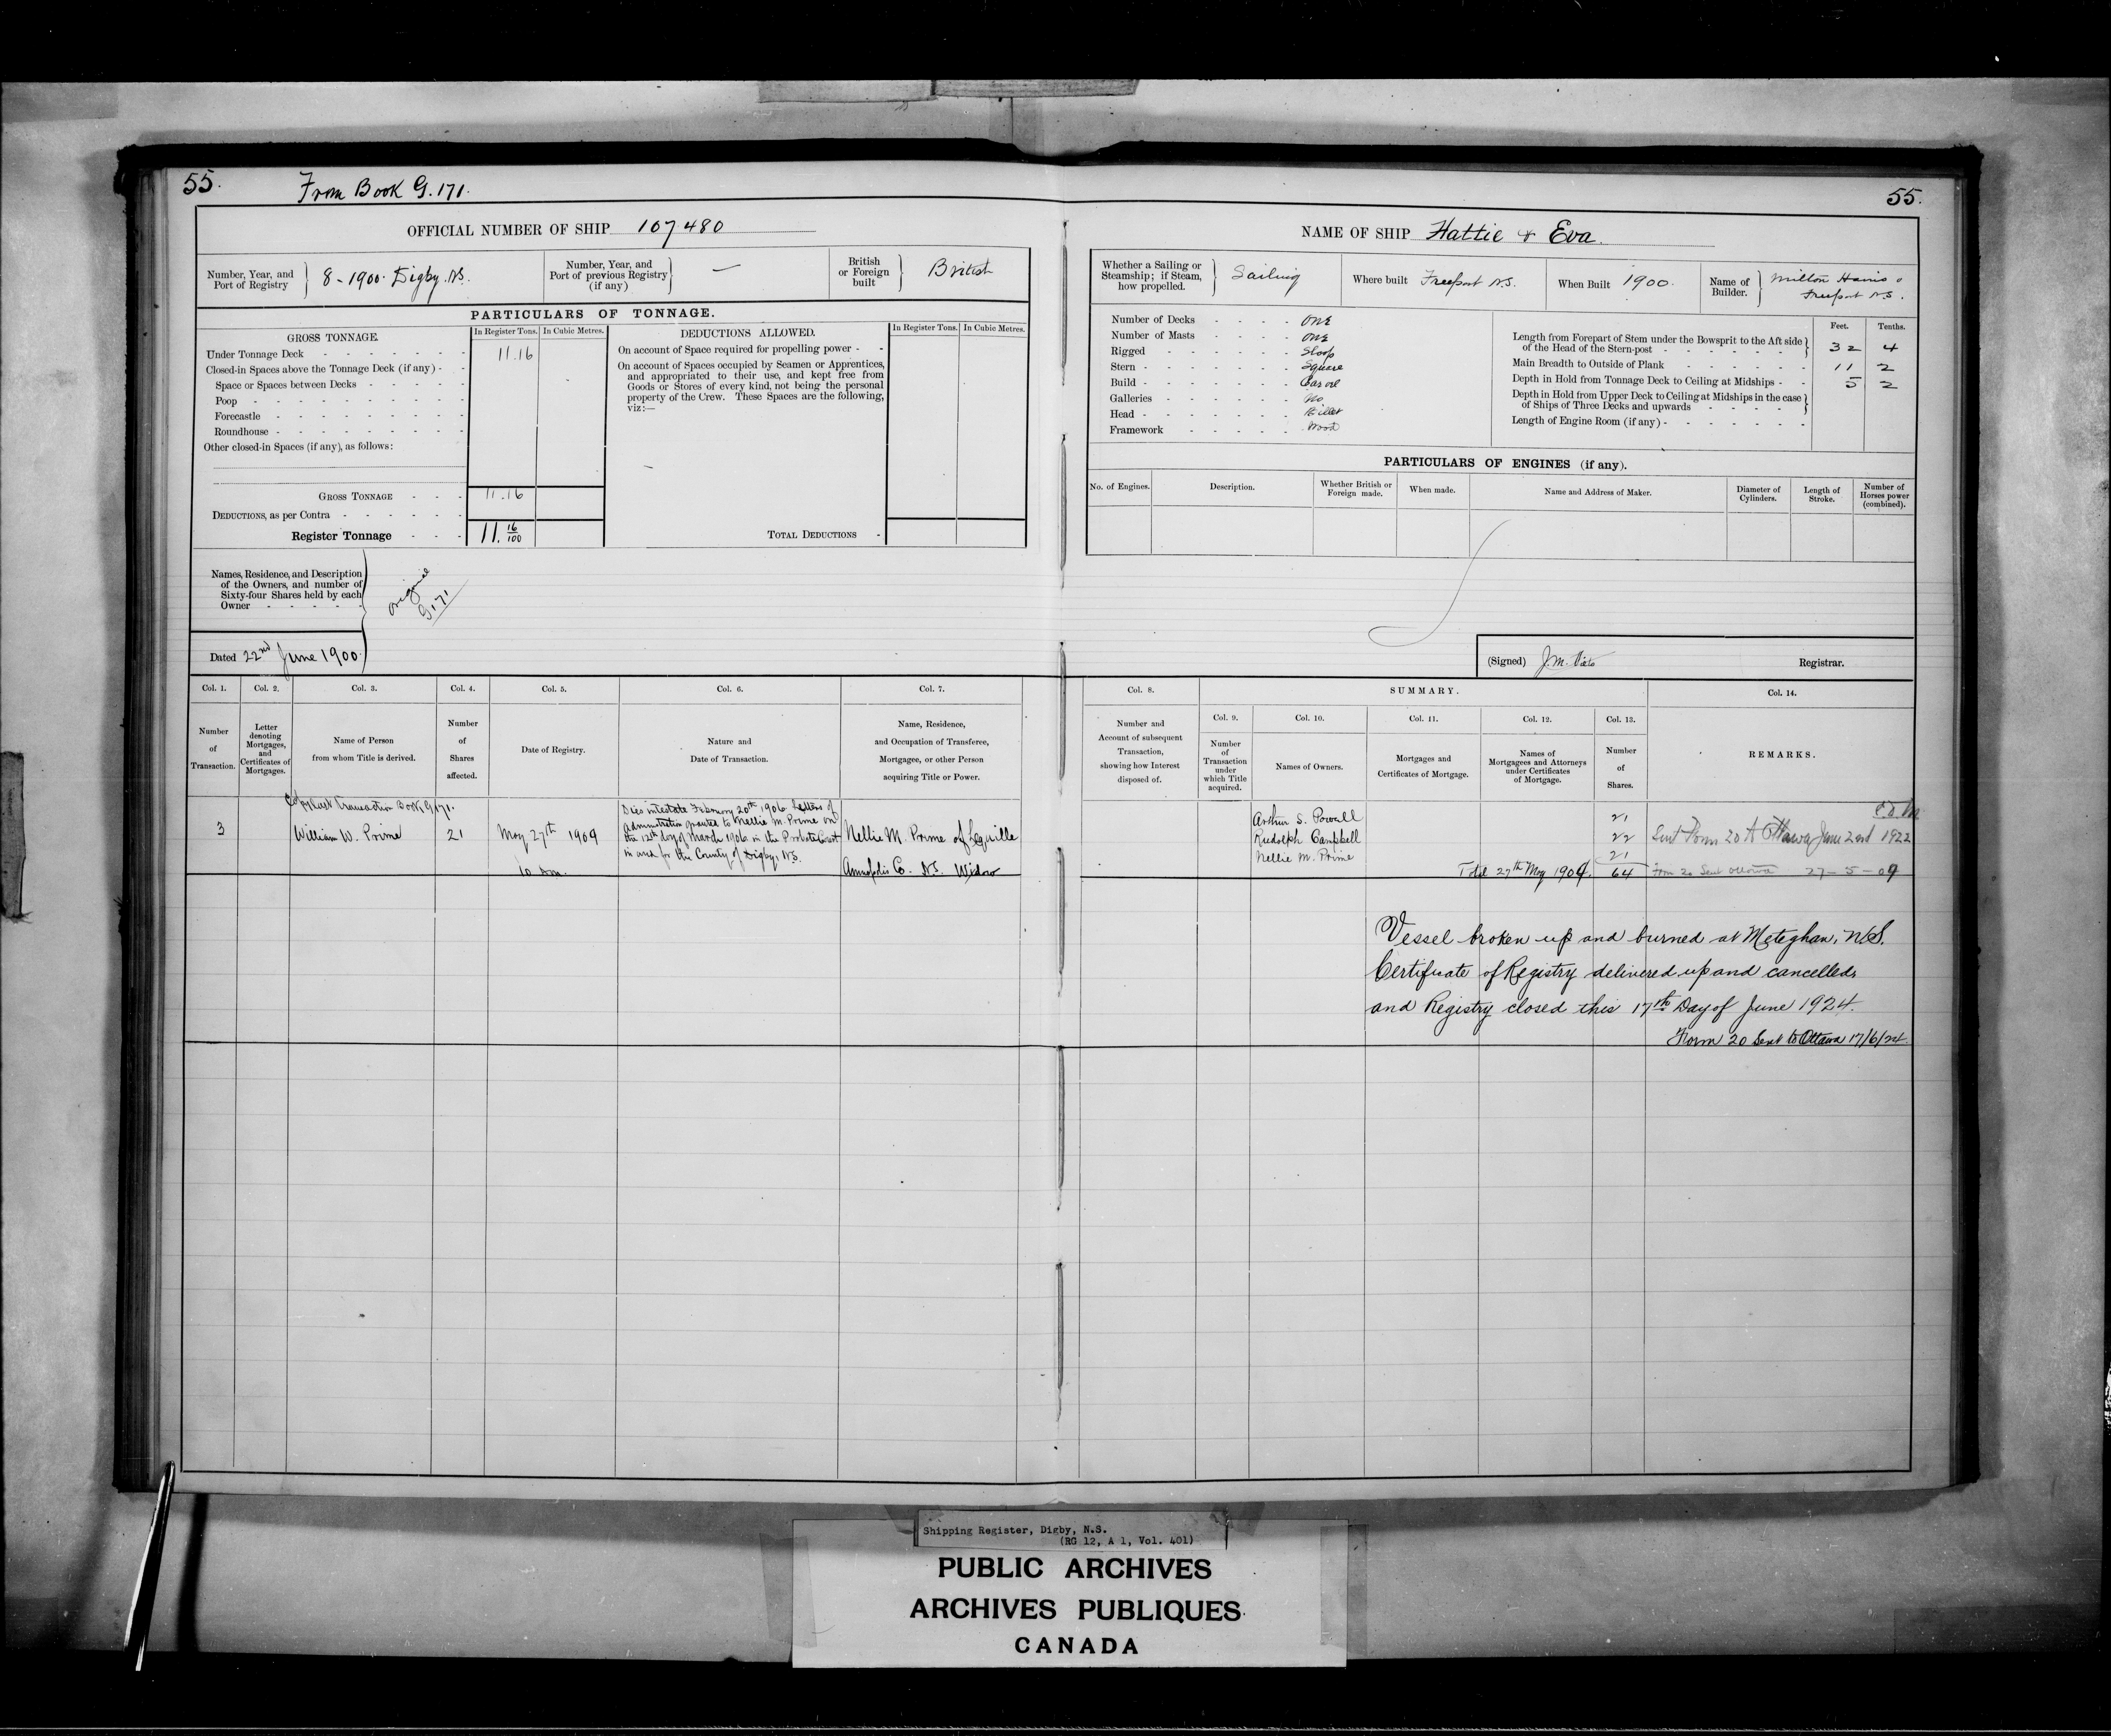 55.
From Book G. 171.
55.
OFFICIAL NUMBER OF SHIP 107480
Number, Year, and
Port of Registry
8-1900. Digby. N.S.
Number, Year, and
Port of previous Registry
(if any)
—
British
or Foreign
built
British
PARTICULARS OF TONNAGE.
GROSS TONNAGE.
In Register Tons.
In Cubic Metres.
Under Tonnage Deck 11.16
Closed-in Spaces above the Tonnage Deck (if any) -
Space or Spaces between Decks
Poop
Forecastle
Roundhouse
Other closed-in Spaces (if any), as follows:
GROSS TONNAGE 11.16
DEDUCTIONS, as per Contra
Register Tonnage 11. 16/100
DEDUCTIONS ALLOWED.
In Register Tons.
In Cubic Metres.
On account of Space required for propelling power -
On account of Spaces occupied by Seamen or Apprentices,
and appropriated to their use, and kept free from
Goods or Stores of every kind, not being the personal
property of the Crew. These Spaces are the following,
viz:—
TOTAL DEDUCTIONS
Names, Residence, and Description
of the Owners, and number of
Sixty-four Shares held by each
Owner
original
G 171
Dated 22nd June 1900.
NAME OF SHIP Hattie & Eva.
Whether a Sailing or
Steamship; if Steam,
how propelled.
Sailing
Where built Freeport N.S.
When Built 1900.
Name of
Builder.
Milton Hains
Freeport N.S.
Number of Decks one
Number of Masts one
Rigged Sloop
Stern Square
Build Carvel
Galleries No
Head Billet
Framework Wood
Feet.
Tenths.
Length from Forepart of Stem under the Bowsprit to the Aft side
of the Head of the Stern-post 32 4
Main Breadth to Outside of Plank 11 2
Depth in Hold from Tonnage Deck to Ceiling at Midships 5 2
Depth in Hold from Upper Deck to Ceiling at Midships in the case
of Ships of Three Decks and upwards
Length of Engine Room (if any)
PARTICULARS OF ENGINES (if any).
No. of Engines.
Description.
Whether British or
Foreign made.
When made.
Name and Address of Maker.
Diameter of
Cylinders.
Length of
Stroke.
Number of
Horses power
(combined).
(Signed) J.M. Registrar.
Col. 1.
Number
of
Transaction.
Col. 2.
Letter
denoting
Mortgages,
and
Certificates of
Mortgages.
Col. 3.
Name of Person
from whom Title is derived.
Col. 4.
Number
of
Shares
affected.
Col. 5.
Date of Registry.
Col. 6.
Nature and
Date of Transaction.
Col. 7.
Name, Residence,
and Occupation of Transferee,
Mortgagee, or other Person
acquiring Title or Power.
Col. 8.
Number and
Account of subsequent
Transaction,
showing how Interest
disposed of.
SUMMARY.
Col. 9.
Number
of
Transaction
under
which Title
acquired.
Col. 10.
Names of Owners.
Col. 11.
Mortgages and
Certificates of Mortgage.
Col. 12.
Names of
Mortgagees and Attorneys
under Certificates
of Mortgage.
Col. 13.
Number
of
Shares.
Col. 14.
REMARKS.
Copy last transaction Book G 171.
3
William W. Prime
21
May 27th 1909
10 am.
Dies intestate February 20th 1906 Letters of
administration granted to Nellie M. Prime on
the 12th day of March 1906 in the Probate Court
in and for the County of Digby, N.S.
Nellie M. Prime of Lequille
Annapolis Co. N.S. Widow
Arthur S. Powell 21
Rudolph Campbell 22
Nellie M. Prime 21
Total 27th May 1909. 64
Sent Form 20 to Ottawa June 2nd 1922
Form 20 Sent Ottawa 27-5-09
Vessel broken up and burned at Meteghan, N.S.
Certificate of Registry delivered up and cancelled,
and Registry closed this 17th Day of June 1924.
Form 20 Sent to Ottawa 17/6/24.
Shipping Register, Digby, N.S.
(RG 12, A 1, Vol. 401)
PUBLIC ARCHIVES
ARCHIVES PUBLIQUES
CANADA